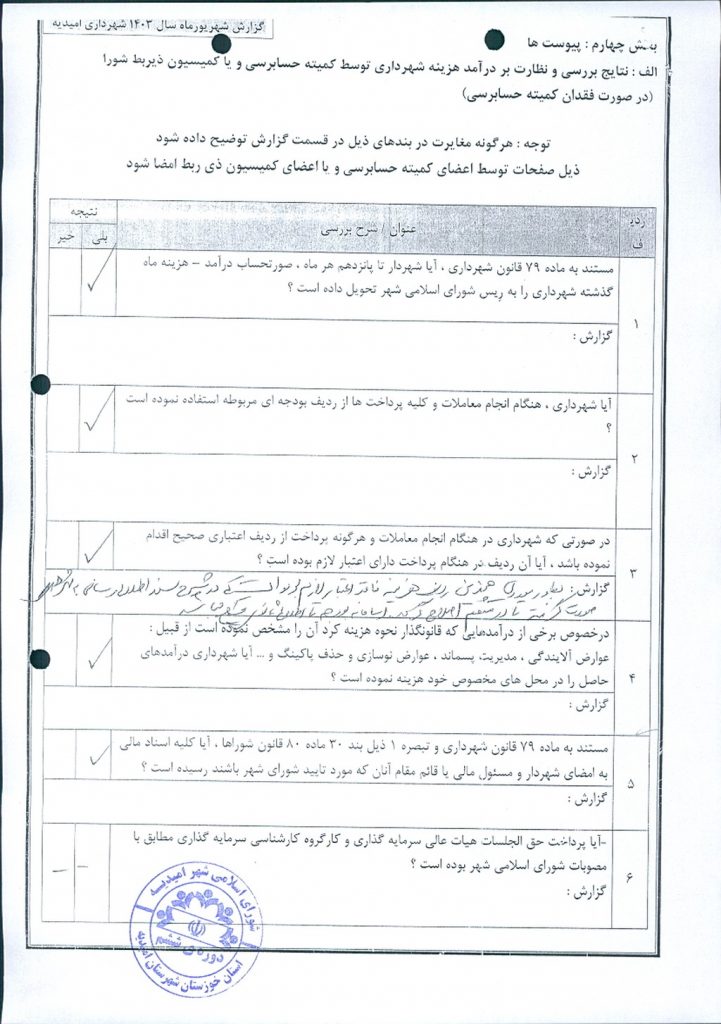 گزارش شهریورماه سال ۱۴۰۳ شهرداری امیدیه
بخش چهارم : پیوست ها
الف : نتایج بررسی و نظارت بر درآمد هزینه شهرداری توسط کمیته حسابرسی و یا کمیسیون ذیربط شورا
(در صورت فقدان کمیته حسابرسی)
توجه : هرگونه مغایرت در بندهای ذیل در قسمت گزارش توضیح داده شود
ذیل صفحات توسط اعضای کمیته حسابرسی و یا اعضای کمیسیون ذی ربط امضا شود
ردیف
عنوان / شرح بررسی
نتیجه
بلی
خیر
۱
مستند به ماده ۷۹ قانون شهرداری ، آیا شهردار تا پانزدهم هر ماه ، صورتحساب درآمد – هزینه ماه
گذشته شهرداری را به ریس شورای اسلامی شهر تحویل داده است ؟
✓
گزارش :
۲
آیا شهرداری ، هنگام انجام معاملات و کلیه پرداخت ها از ردیف بودجه ای مربوطه استفاده نموده است
؟
✓
گزارش :
۳
در صورتی که شهرداری در هنگام انجام معاملات و هرگونه پرداخت از ردیف اعتباری صحیح اقدام
نموده باشد ، آیا آن ردیف در هنگام پرداخت دارای اعتبار لازم بوده است ؟
✓
گزارش : بطور موردی چندین ردیف هزینه فاقد اعتبار لازم بوده است که در شرح سند اطلاع رسانی به
صورت گرفته تا در اصلاح بودجه
۴
درخصوص برخی از درآمدهایی که قانونگذار نحوه هزینه کرد آن را مشخص نموده است از قبیل :
عوارض آلایندگی ، مدیریت پسماند ، عوارض نوسازی و حذف پاکینگ و ... آیا شهرداری درآمدهای
حاصل را در محل های مخصوص خود هزینه نموده است ؟
✓
گزارش :
۵
مستند به ماده ۷۹ قانون شهرداری و تبصره ۱ ذیل بند ۳۰ ماده ۸۰ قانون شوراها ، آیا کلیه اسناد مالی
به امضای شهردار و مسئول مالی یا قائم مقام آنان که مورد تایید شورای شهر باشند رسیده است ؟
✓
گزارش :
۶
-آیا پرداخت حق الجلسات هیات عالی سرمایه گذاری و کارگروه کارشناسی سرمایه گذاری مطابق با
مصوبات شورای اسلامی شهر بوده است ؟
– –
گزارش :
شورای اسلامی شهر امیدیه
دوره‌ی ششم
استان خوزستان شهرستان امیدیه